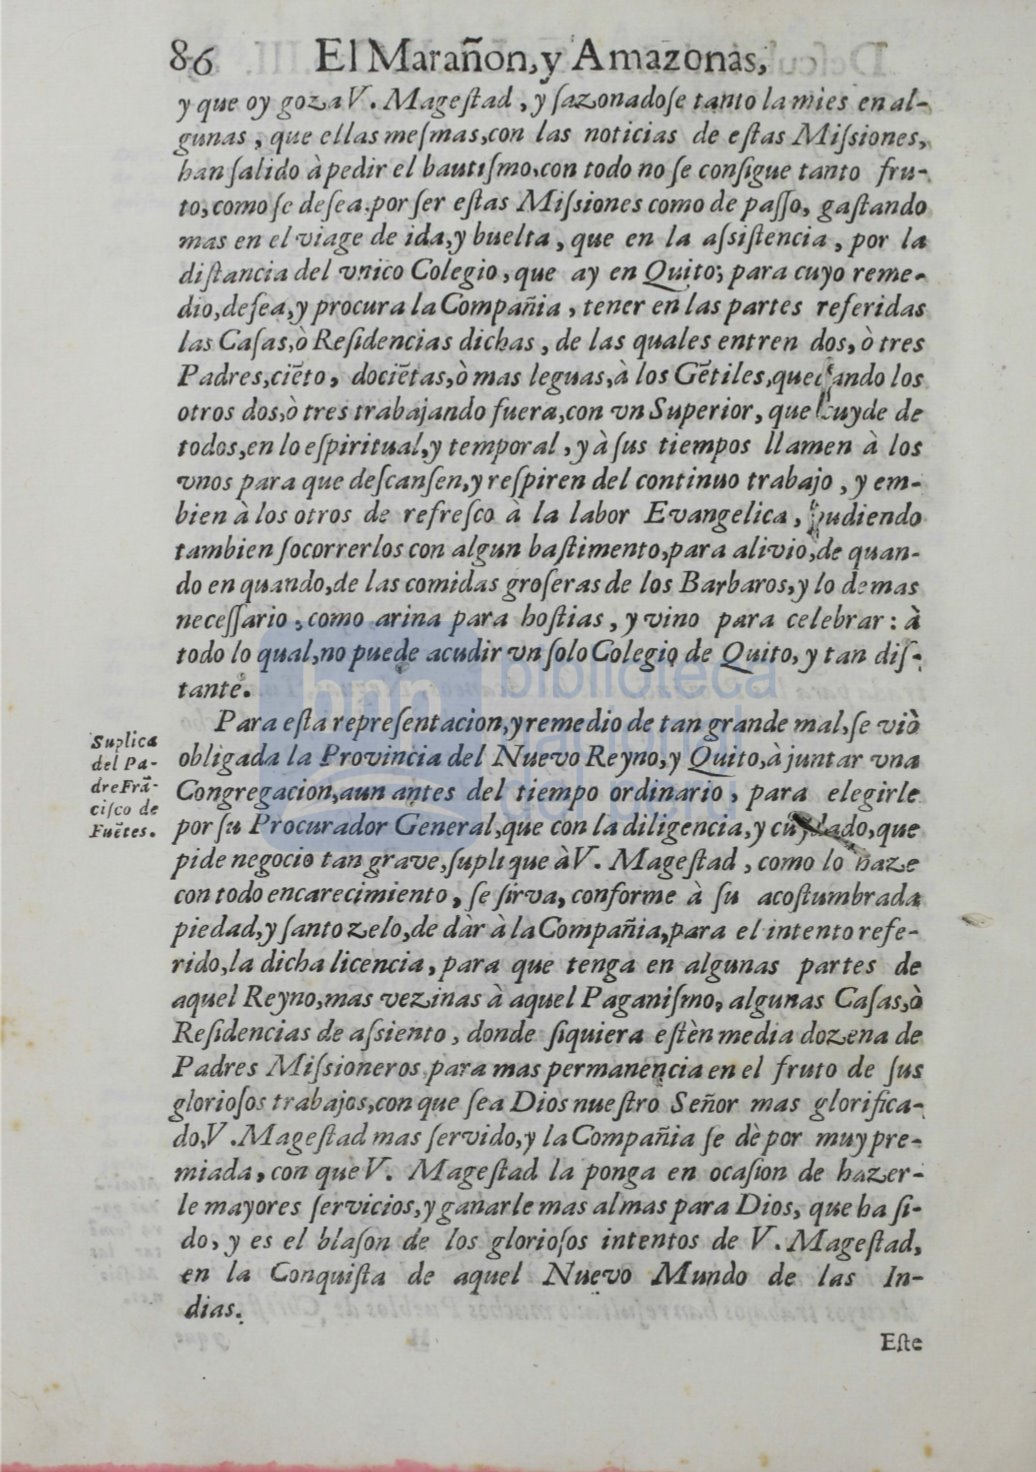 86 El Marañon, y Amazonas,
y que oy goza V. Magestad, y sazonadose tanto la mies en al-
gunas, que ellas mesmas, con las noticias de estas Missiones,
han salido à pedir el bautismo, con todo no se consigue tanto fru-
to, como se desea, por ser estas Missiones como de passo, gastando
mas en el viage de ida, y buelta, que en la assistencia, por la
distancia del vnico Colegio, que ay en Quito; para cuyo reme-
dio, desea, y procura la Compañia, tener en las partes referidas
las Casas, ò Residencias dichas, de las quales entren dos, ò tres
Padres, ciẽto, dociẽtas, ò mas leguas, à los Gẽtiles, quedando los
otros dos, ò tres trabajando fuera, con vn Superior, que cuyde de
todos, en lo espiritual, y temporal, y à sus tiempos llamen à los
vnos para que descansen, y respiren del continuo trabajo, y em-
bien à los otros de refresco à la labor Evangelica, pudiendo
tambien socorrerlos con algun bastimento, para alivio, de quan-
do en quando, de las comidas groseras de los Barbaros, y lo demas
necessario, como arina para hostias, y vino para celebrar: à
todo lo qual, no puede acudir vn solo Colegio de Quito, y tan dis-
tante.
Para esta representacion, y remedio de tan grande mal, se viò
obligada la Provincia del Nuevo Reyno, y Quito, à juntar vna
Congregacion, aun antes del tiempo ordinario, para elegirle
por su Procurador General, que con la diligencia, y cuydado, que
pide negocio tan grave, suplique à V. Magestad, como lo haze
con todo encarecimiento, se sirva, conforme à su acostumbrada
piedad, y santo zelo, de dàr à la Compañia, para el intento refe-
rido, la dicha licencia, para que tenga en algunas partes de
aquel Reyno, mas vezinas à aquel Paganismo, algunas Casas, ò
Residencias de assiento, donde siquiera estèn media dozena de
Padres Missioneros, para mas permanencia en el fruto de sus
gloriosos trabajos, con que sea Dios nuestro Señor mas glorifica-
do, V. Magestad mas servido, y la Compañia se dè por muy pre-
miada, con que V. Magestad la ponga en ocasion de hazer-
le mayores servicios, y ganarle mas almas para Dios, que ha si-
do, y es el blason de los gloriosos intentos de V. Magestad,
en la Conquista de aquel Nuevo Mundo de las In-
dias.
Suplica
del Pa-
dre Frã-
cisco de
Fuẽtes.
Este
bnp
biblioteca
nacional
del perú